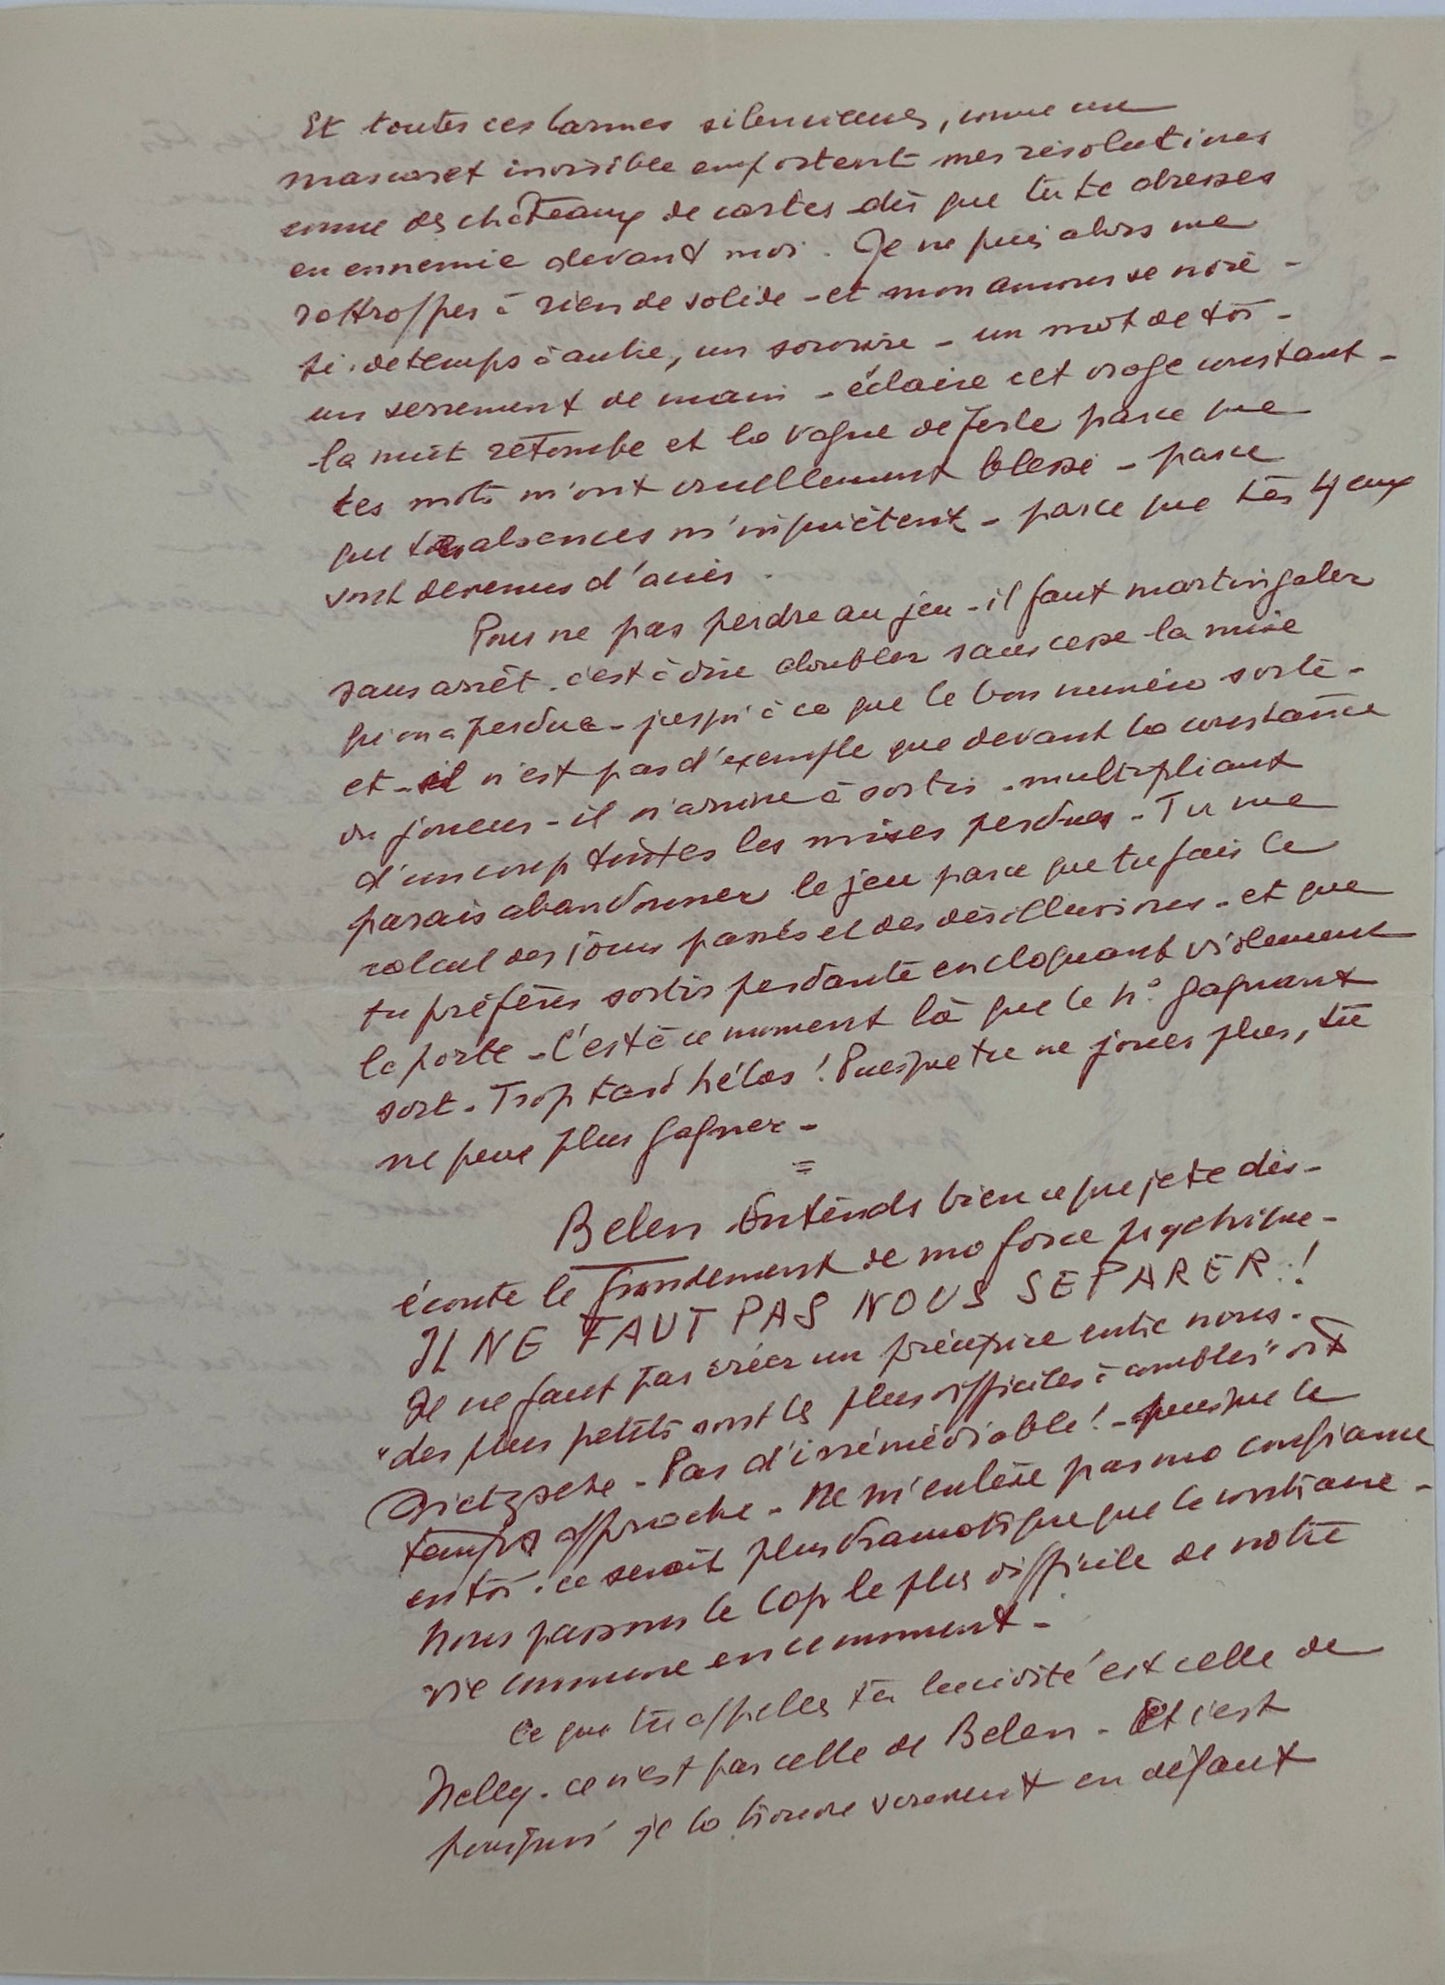 Et toutes ces larmes silencieuses, comme un
mascaret invisible emportent mes résolutions
comme des châteaux de cartes dès que tu te dresses
en ennemie devant moi. Je ne puis alors me
rattraper à rien de solide - et mon amour se noie -
si de temps à autre, un sourire - un mot de toi -
un serrement de main - éclaire cet orage constant -
la nuit retombe et la vague déferle parce que
tes mots m'ont cruellement blessé - parce
que tes absences m'inquiètent - parce que tes yeux
sont devenus d'acier.
Pour ne pas perdre au jeu - il faut martingaler
sans arrêt. c'est à dire doubler sans cesse la mise
qu'on a perdue - jusqu'à ce que le bon numéro sorte -
et - il n'est pas d'exemple que devant la constance
du joueur - il n'arrive à sortir - multipliant
d'un coup toutes les mises perdues - Tu me
parais abandonner le jeu parce que tu fais le
calcul des jours passés et des désillusions - et que
tu préfères sortir perdante en claquant violemment
la porte - C'est à ce moment là que le n° gagnant
sort. Trop tard hélas ! Puisque tu ne joues plus, tu
ne peux plus gagner -
=
Belen Entends bien ce que je te dis -
écoute le grondement de ma force psychique -
IL NE FAUT PAS NOUS SEPARER !
Il ne faut pas créer un précipice entre nous -
"des plus petits sont les plus difficiles à combler" dit
Nietzsche - Pas d'irrémédiable ! - puisque le
temps approche - Ne m'enlève pas ma confiance
en toi. ce serait plus dramatique que le contraire -
Nous passons le Cap le plus difficile de notre
vie commune en ce moment -
Ce que tu appelles ta lucidité est celle de
Nelly. ce n'est pas celle de Belen - Et c'est
pourquoi je la trouve surement en défaut